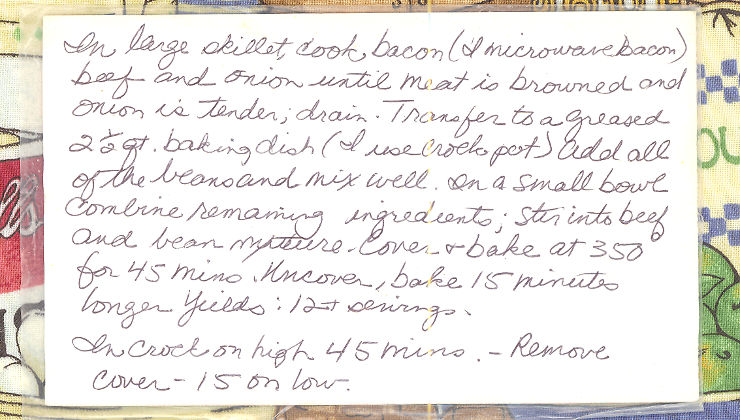 In large skillet, cook, bacon (I microwave bacon)
beef and onion until meat is browned and
onion is tender; drain. Transfer to a greased
2½ qt. baking dish (I use Crock pot) Add all
of the beans and mix well. In a small bowl
Combine remaining ingredients; stir into beef
and bean mixture. Cover & bake at 350°
for 45 mins. Uncover, bake 15 minutes
longer. Yields: 12+ servings.
In Crock on high 45 mins. - Remove
cover - 15 on low.